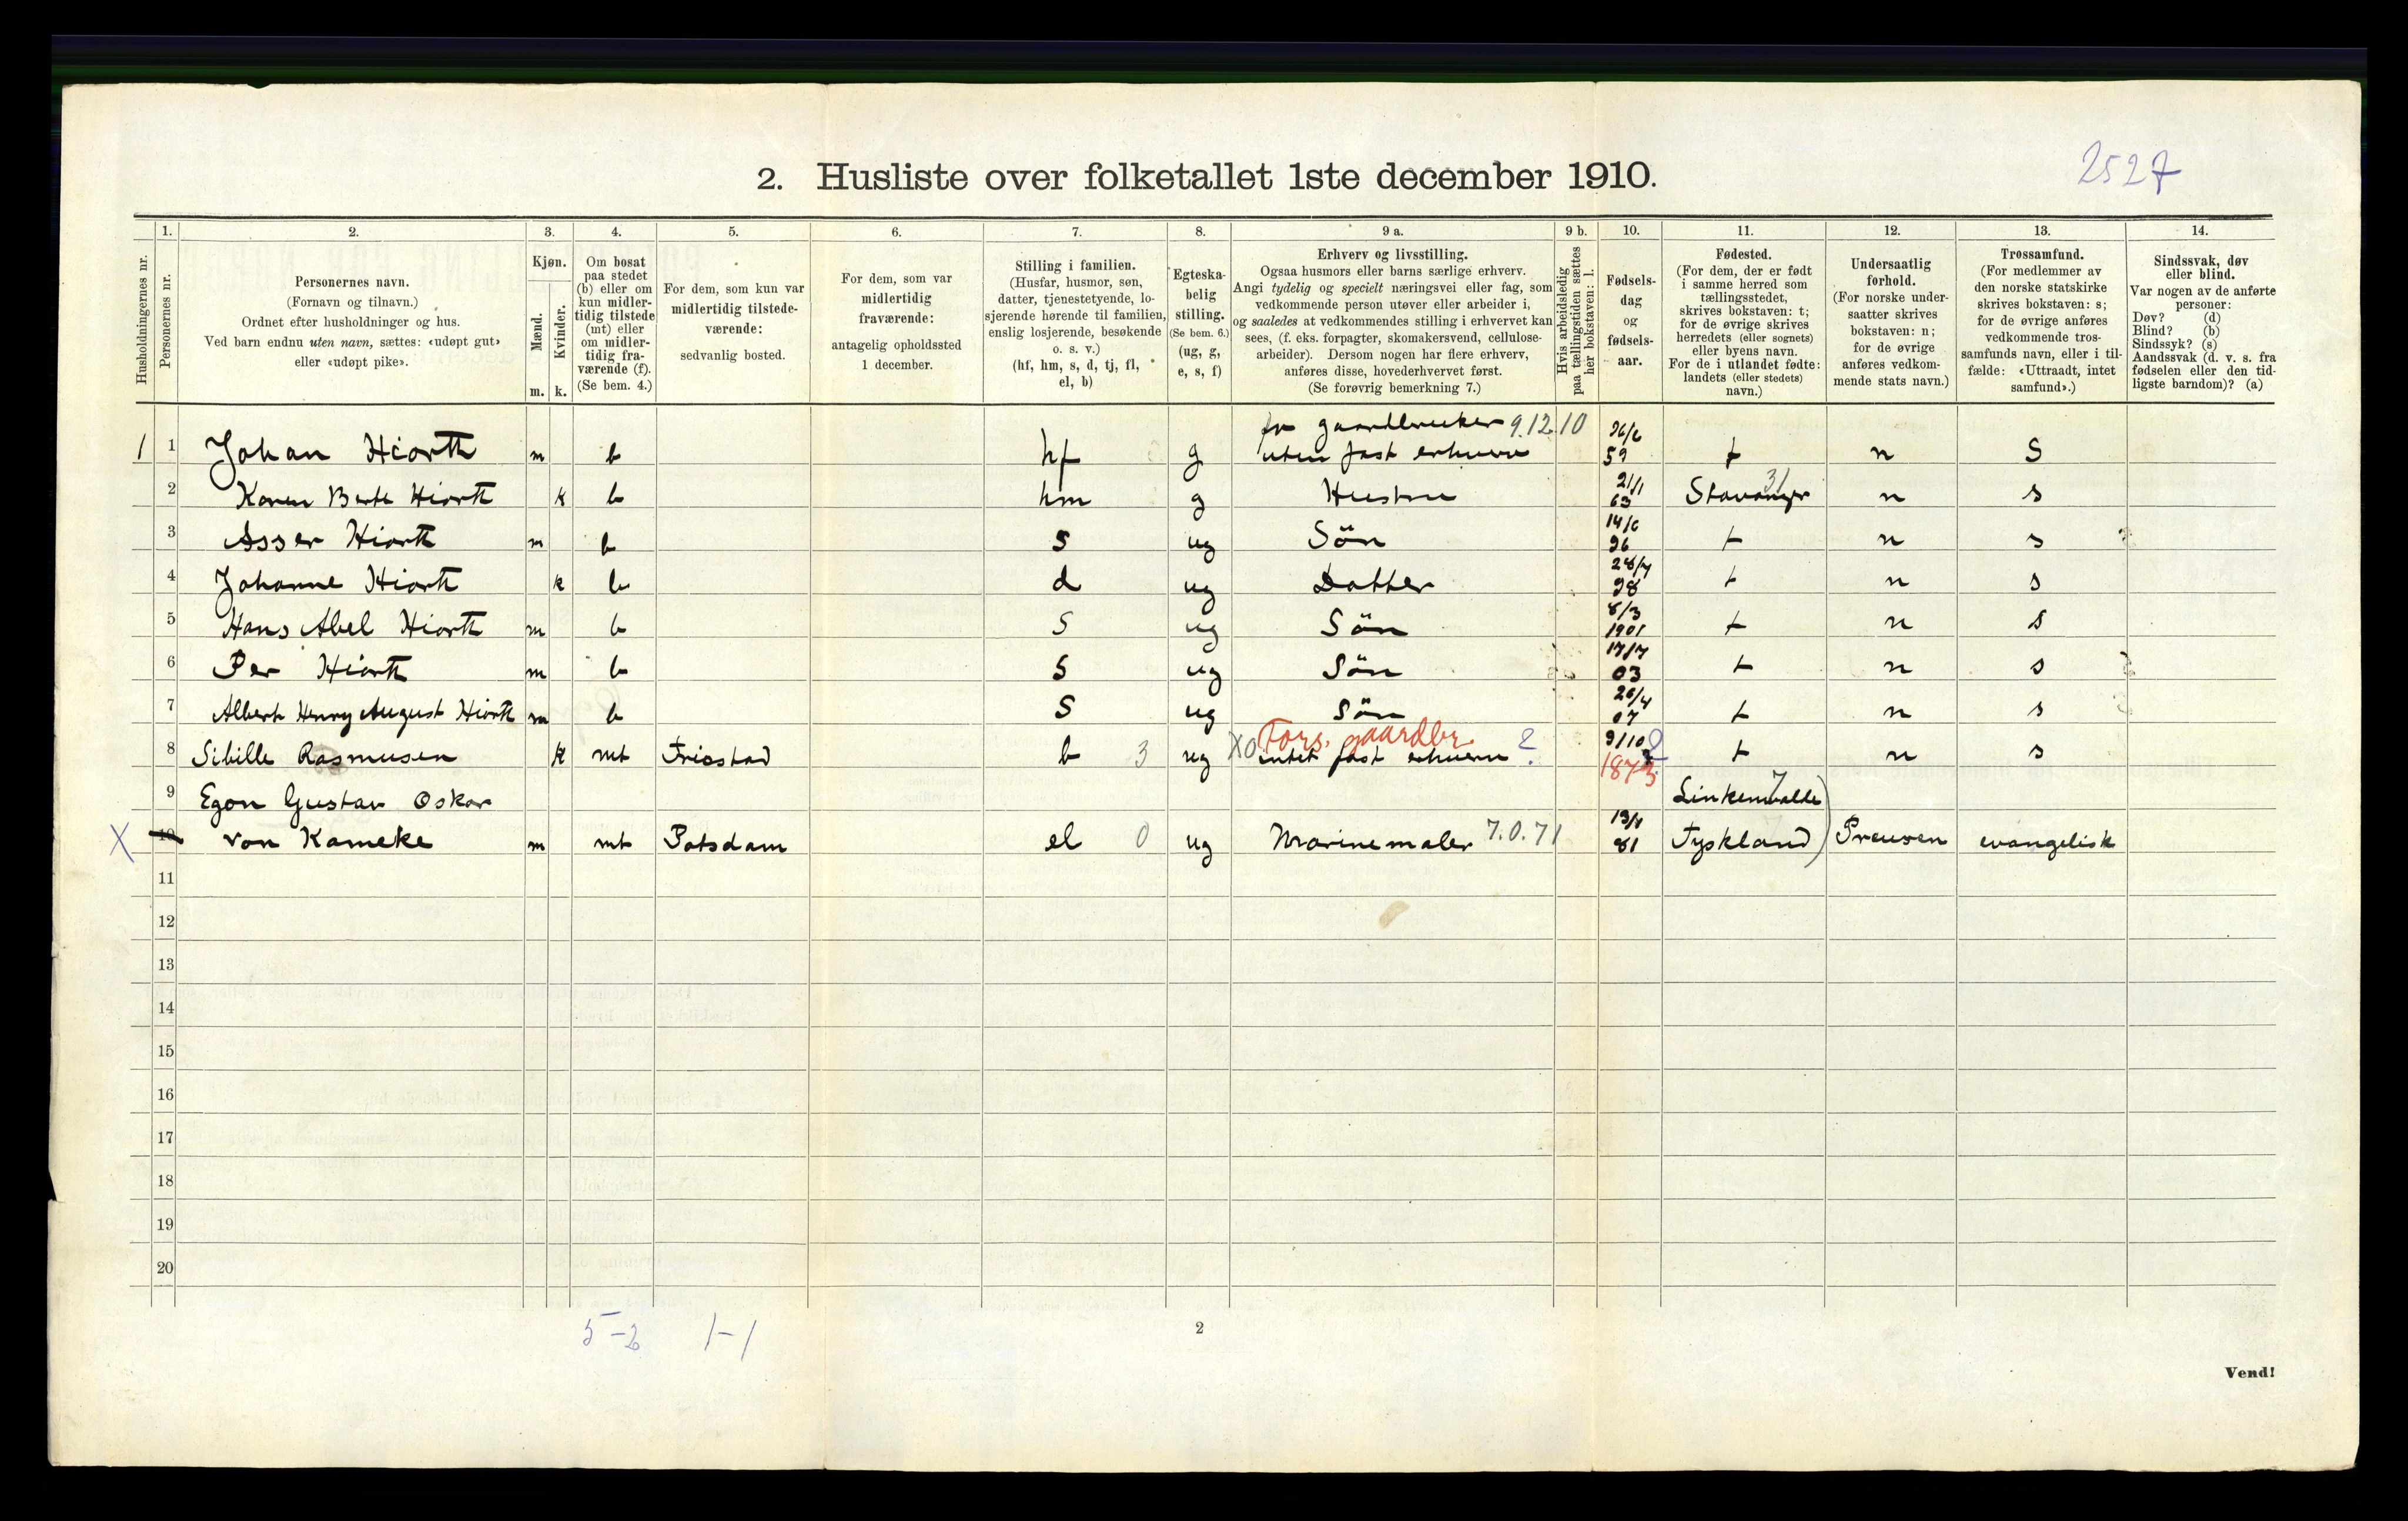 2527
2. Husliste over folketallet 1ste december 1910.
Husholdningernes nr.
1.
Personernes nr.
2.
Personernes navn.
(Fornavn og tilnavn.)
Ordnet efter husholdninger og hus.
Ved barn endnu uten navn, sættes: «udøpt gut»
eller «udøpt pike».
3.
Kjøn.
Mænd.
Kvinder.
m. k.
4.
Om bosat
paa stedet
(b) eller om
kun midler-
tidig tilstede
(mt) eller
om midler-
tidig fra-
værende (f).
(Se bem. 4.)
5.
For dem, som kun var
midlertidig tilstede-
værende:
sedvanlig bosted.
6.
For dem, som var
midlertidig
fraværende:
antagelig opholdssted
1 december.
7.
Stilling i familien.
(Husfar, husmor, søn,
datter, tjenestetyende, lo-
sjerende hørende til familien,
enslig losjerende, besøkende
o. s. v.)
(hf, hm, s, d, tj, fl,
el, b)
8.
Egteska-
belig
stilling.
(Se bem. 6.)
(ug, g,
e, s, f)
9 a.
Erhverv og livsstilling.
Ogsaa husmors eller barns særlige erhverv.
Angi tydelig og specielt næringsvei eller fag, som
vedkommende person utøver eller arbeider i,
og saaledes at vedkommendes stilling i erhvervet kan
sees, (f. eks. forpagter, skomakersvend, cellulose-
arbeider). Dersom nogen har flere erhverv,
anføres disse, hovederhvervet først.
(Se forøvrig bemerkning 7.)
9 b.
Hvis arbeidsledig
paa tællingstiden sættes
her bokstaven: l.
10.
Fødsels-
dag
og
fødsels-
aar.
11.
Fødested.
(For dem, der er født
i samme herred som
tællingsstedet,
skrives bokstaven: t;
for de øvrige skrives
herredets (eller sognets)
eller byens navn.
For de i utlandet fødte:
landets (eller stedets)
navn.)
12.
Undersaatlig
forhold.
(For norske under-
saatter skrives
bokstaven: n;
for de øvrige
anføres vedkom-
mende stats navn.)
13.
Trossamfund.
(For medlemmer av
den norske statskirke
skrives bokstaven: s;
for de øvrige anføres
vedkommende tros-
samfunds navn, eller i til-
fælde: «Uttraadt, intet
samfund».)
14.
Sindssvak, døv
eller blind.
Var nogen av de anførte
personer:
Døv? (d)
Blind? (b)
Sindssyk? (s)
Aandssvak (d. v. s. fra
fødselen eller den tid-
ligste barndom)? (a)
gaardbruker 9.12.10
1 1 Johan Hiorth m b hf g uten fast erhverv 26/6 59 t n S
2 Karen Berte Hiorth k b hm g Hustru 21/1 63 Stavanger 31 n s
3 Asser Hiorth m b s ug Sön 14/6 96 t n s
4 Johanne Hiorth k b d ug Datter 28/7 98 t n s
5 Hans Abel Hiorth m b S ug Sön 8/3 1901 t n s
6 Per Hiorth m b S ug Sön 17/7 03 t n s
7 Albert Henry August Hiorth m b S ug Sön 26/4 07 t n s
Fors. gaardbr.
8 Sibille Rasmusen k mt b 3 ug X0 intet fast erhverv ? 9/10 1873 t n s
9 Egon Gustav Oskar Linkenwalde 7
X 10 von Kameke m mt Potsdam el 0 ug Marinemaler 7.0.71 81 Tyskland) Preusen evangelisk
11
12
13
14
15
16
17
18
19
20
5-2 1-1
2
Vend!